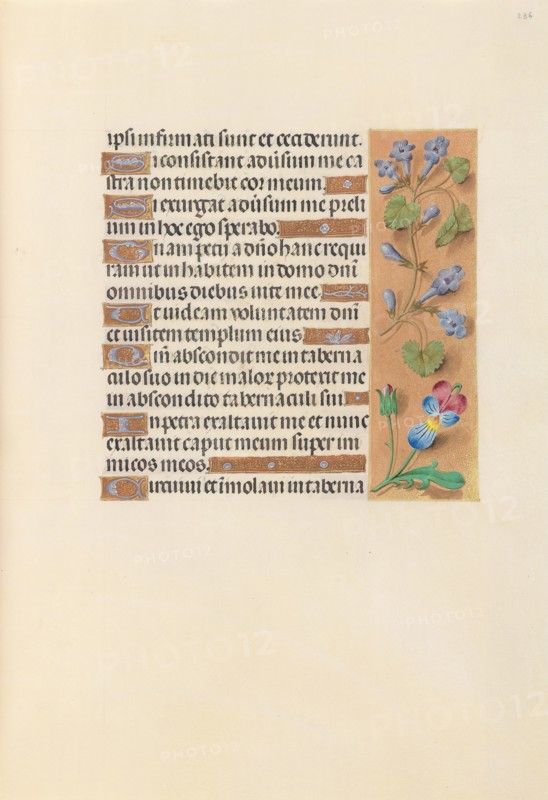 286
ipsi infirmati sunt et ceciderunt.
Si consistant adūsum me ca
stra non timebit cor meum.
Si exurgat adūsum me preli
um in hoc ego sperabo.
Unam petii a dn̄o hanc requi
ram ut inhabitem in domo dn̄i
omnibus diebus vite mee.
Ut videam voluntatem dn̄i
et visitem templum eius.
Qm̄ abscondit me in taberna
culo suo in die malor protexit me
in abscondito tabernaculi sui.
In petra exaltavit me et nunc
exaltavit caput meum super ini
micos meos.
Circuivi et īmolavi in taberna